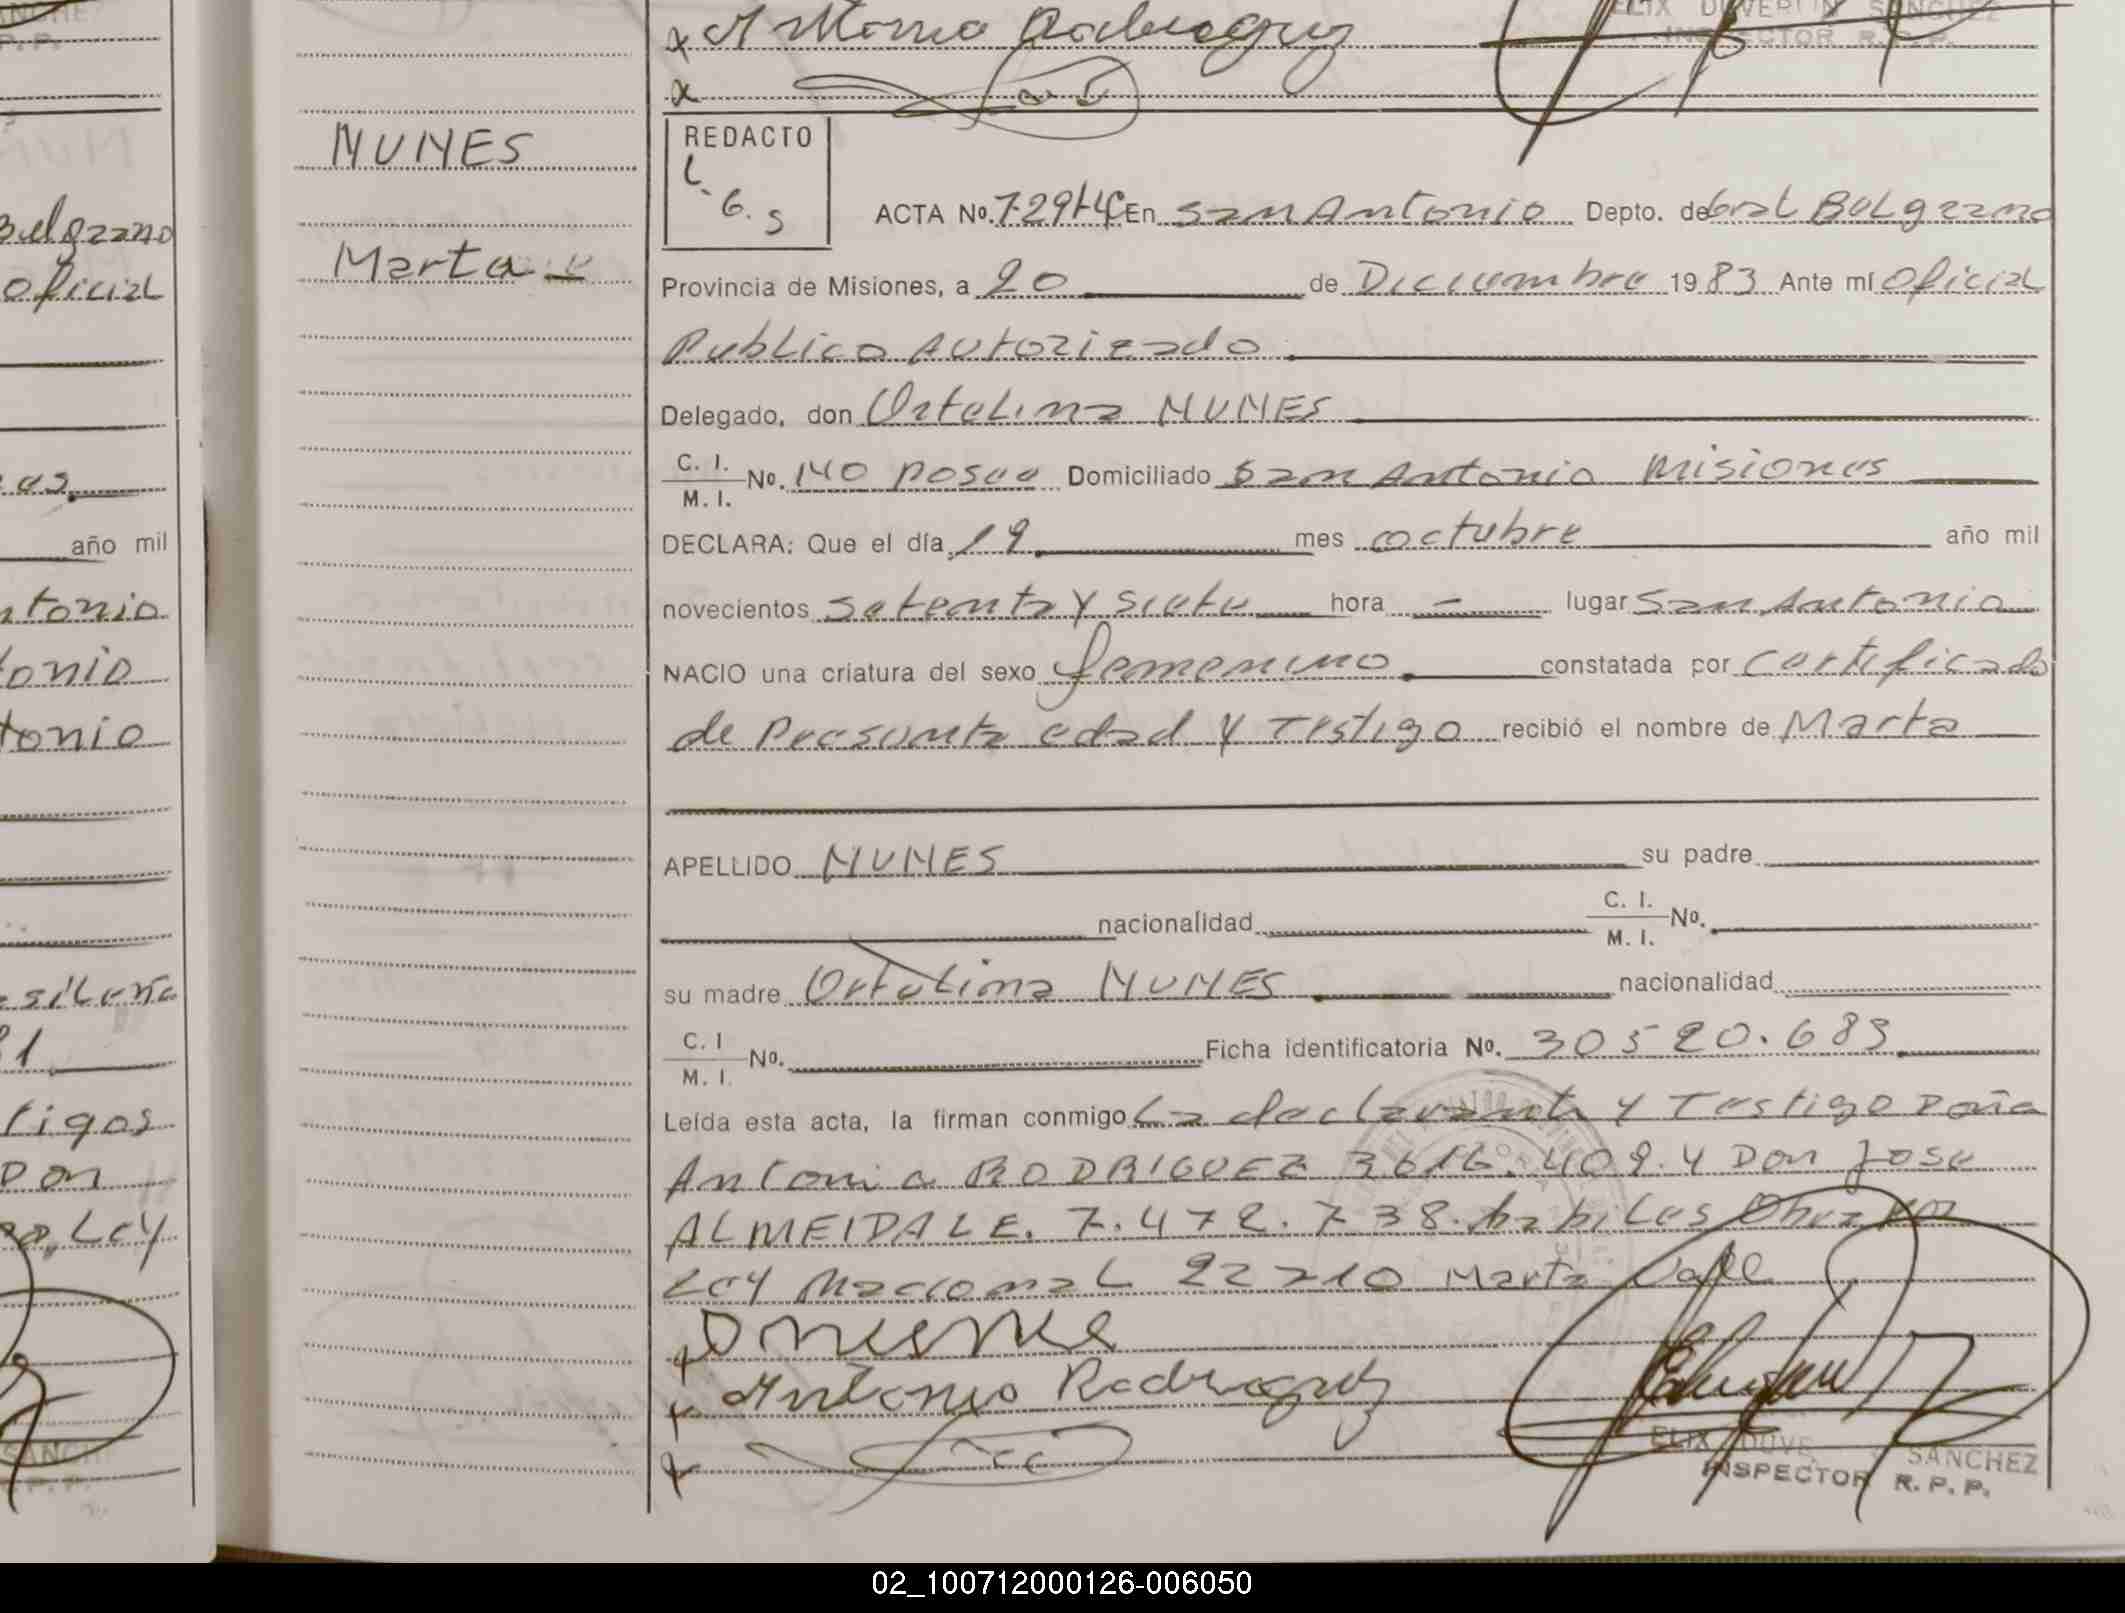 ANCHE
P.P.
Belgrano
oficial
es
año mil
ntonio
tonio
tonio
81
tigos
Don
Ley
SANCH
P.P.
NUNES
Marta
x Antonia Rodrigues
x
ELIX DUVERLIN SANCHEZ
INSPECTOR R.P.P.
REDACTO
L. G. S
ACTA No. En San Antonio Depto. de Gral Belgrano
Provincia de Misiones, a 20 de Diciembre 1983 Ante mí Oficial
Publico Autorizado
Delegado, don Ortelina NUNES
C. I. / M. I. No. no posee Domiciliado San Antonio Misiones
DECLARA: Que el día 19 mes octubre año mil
novecientos setenta y siete hora - lugar San Antonio
NACIO una criatura del sexo femenino constatada por certificado
de Presunta edad y Testigo recibió el nombre de Marta
APELLIDO NUNES su padre
nacionalidad C. I. / M. I. No.
su madre Ortelina NUNES nacionalidad
C. I / M. I. No. Ficha identificatoria No. 30520.683
Leída esta acta, la firman conmigo La declarante y Testigo Doña
Antonia RODRIGUEZ 3616.409.y Don Jose
ALMEIDA L.E. 7.472.738. habiles
Ley Nacional 22210 Marta Vale
x O nunes
x Antonia Rodrigues
x
ELIX DUVE SANCHEZ
INSPECTOR R.P.P.
02_100712000126-006050